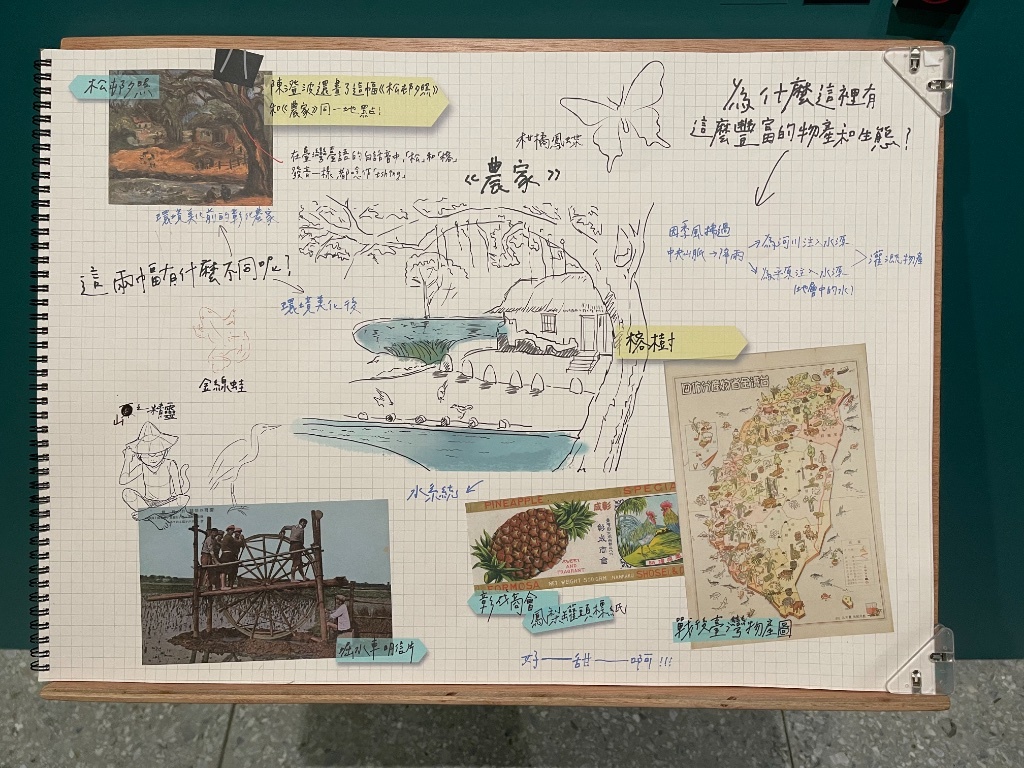 松邨夕照
陳澄波還畫了這幅《松邨夕照》
和《農家》同一地點!
在臺灣臺語的白話音中,「松」和「榕」
發音一樣都唸作「tshîng」
環境美化前的彰化農家
這兩幅有什麼不同呢?
環境美化後
金線蛙
精靈
柑橘鳳蝶
《農家》
為什麼這裡有
這麼豐富的物產和生態?
因季風擋過
中央山脈→降雨
為河川注入水源
為泉湧注入水源
(地層中的水)
灌溉物產
榕樹
水系統
水車明信片
PINEAPPLE
SPECIAL
彰成
彰成商會
SWEET
AND
FRAGRANT
FORMOSA
NET WEIGHT
彰成商會
鳳梨罐頭標紙
好——甜——啊!!!
台灣全省物產分佈図
戰後臺灣物產圖